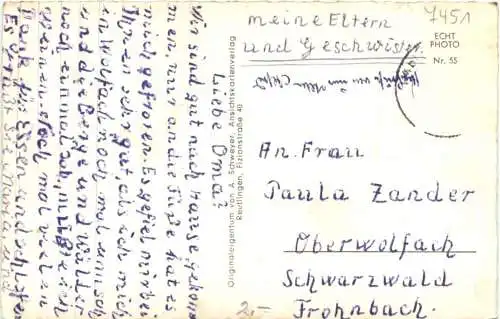 Liebe Oma!
Wir sind gut nach Hause gekom
men, nur an die Füße hat es
mich gefroren. Es gefiel mir bei
Ihnen sehr gut als ich mich
in Wolfach noch mal umsch
und die Berge und Wälder
noch einmal sah,
einen noch mal vielen
Dank für Essen und schlafen
Es grüßt Sie Maria und
meine Eltern
und Geschwister.
7451
ECHT
PHOTO
Nr. 55
Originaleigentum von A. Schweyer, Ansichtskartenverlag
Reutlingen, Fizionstraße 40
An. Frau
Paula Zander
Oberwolfach
Schwarzwald
Frohnbach.
2,-